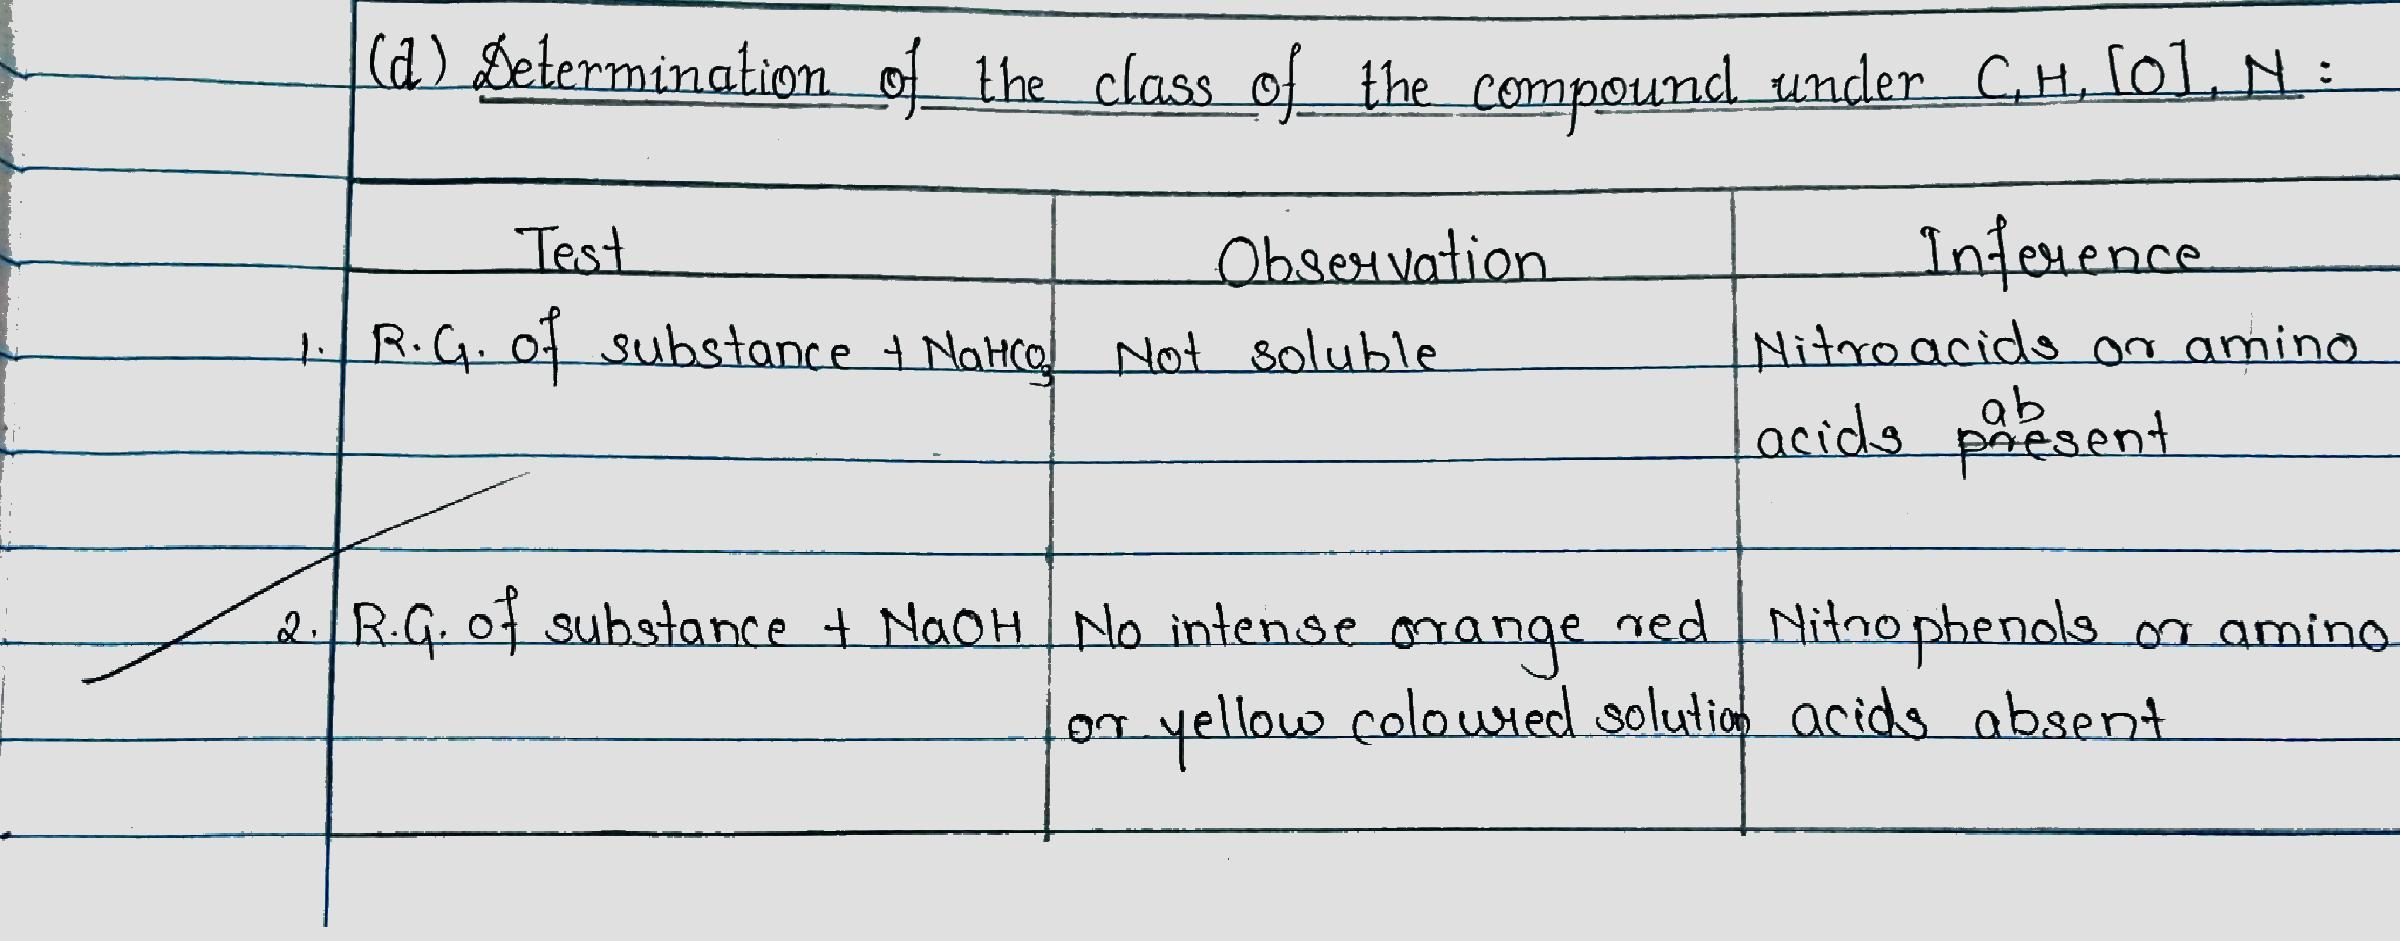 (d) Determination of the class of the compound under C, H, [O], N :
Test Observation Inference
1. R.G. of substance + NaHCO3 Not soluble Nitroacids or amino
acids absent
2. R.G. of substance + NaOH No intense orange red Nitrophenols or amino
or yellow coloured solution acids absent